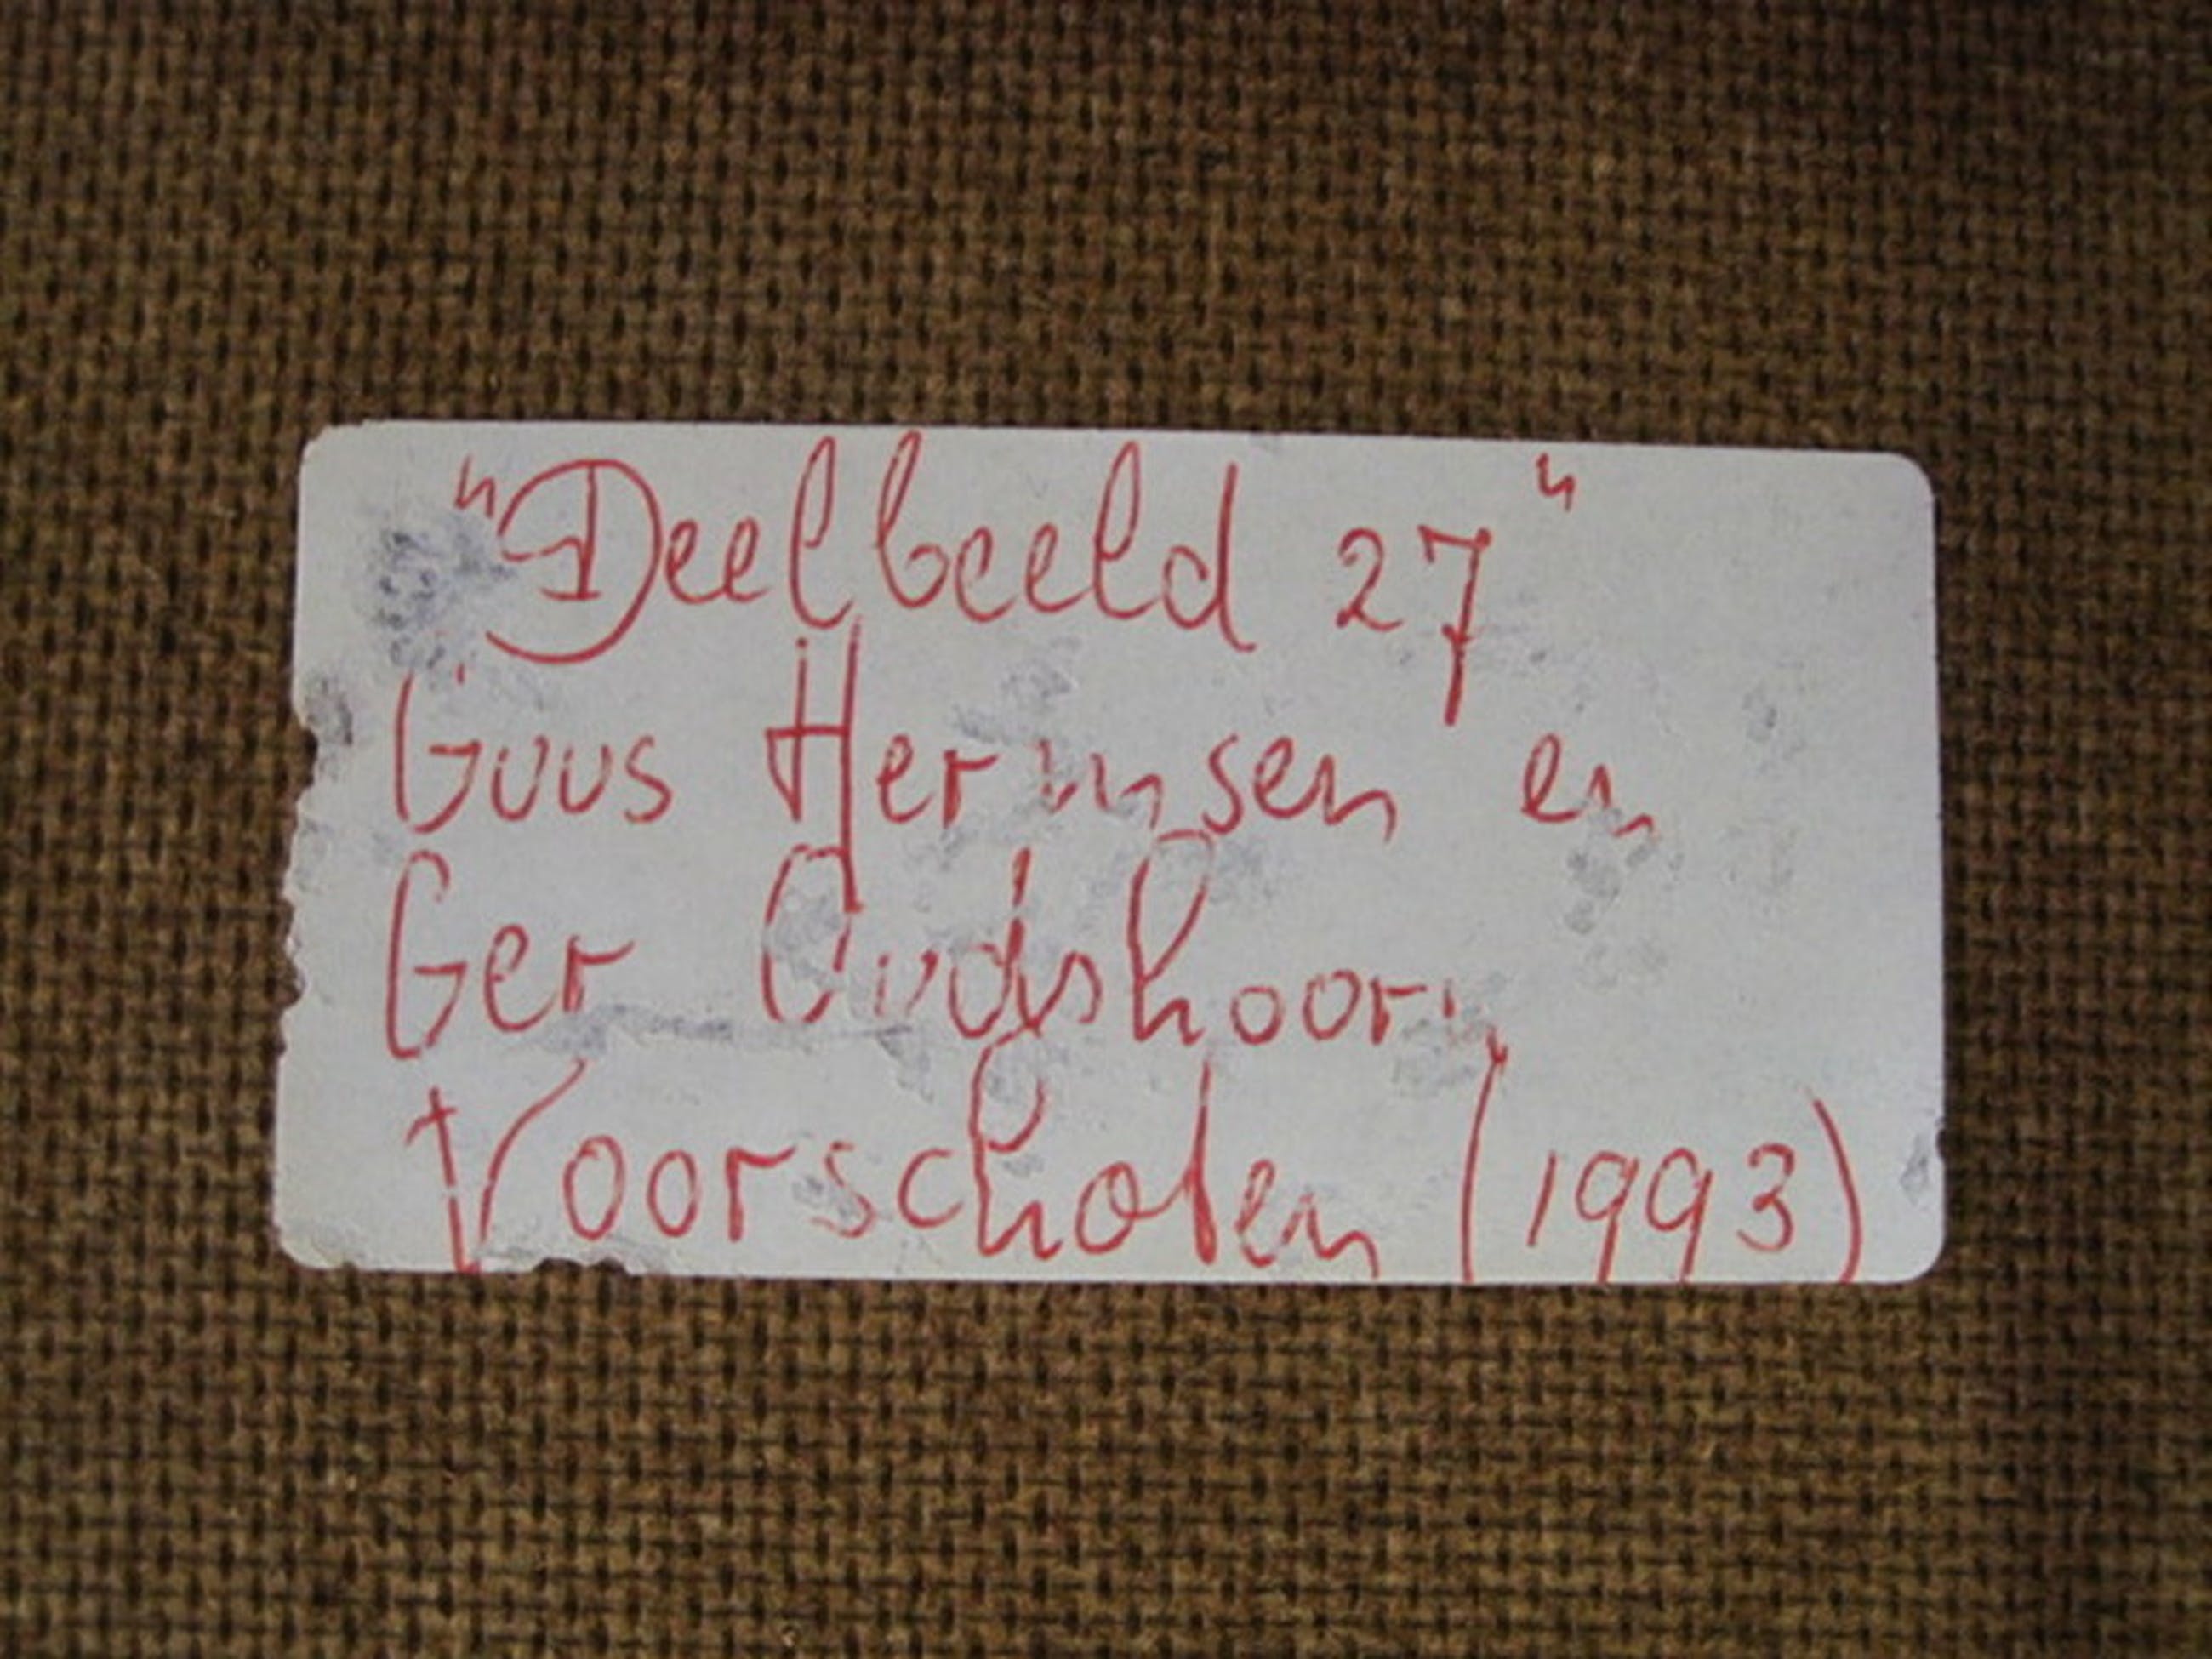 "Deelbeeld 27"
Guus Hermsen en
Ger Oudshoorn
Voorschoten (1993)